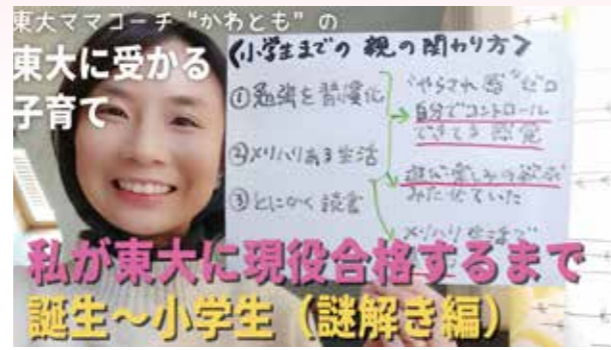 東大ママコーチ“かわとも”の
東大に受かる
子育て
《小学生までの 親の関わり方》
①勉強を習慣化
②メリハリある生活
③とにかく読書
“やらされ感”ゼロ
自分でコントロール
できてる感覚
みたせていた
メリハリ生活で
私が東大に現役合格するまで
誕生～小学生（謎解き編）